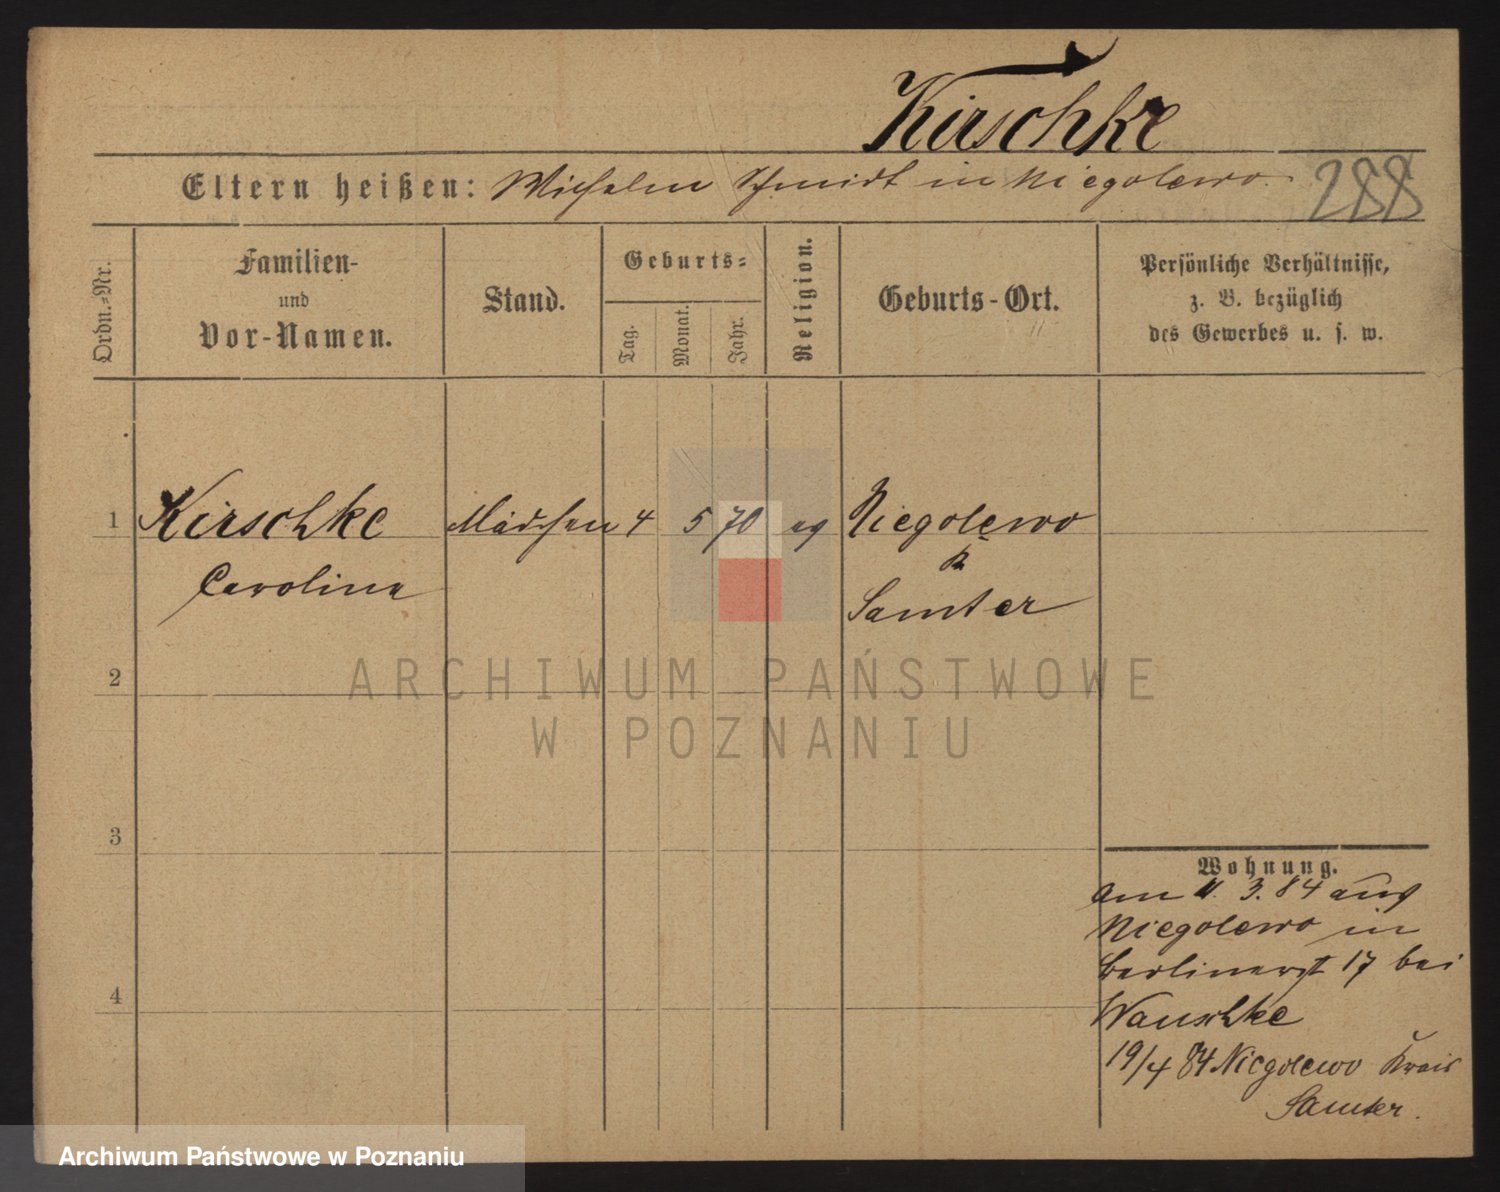 Kirschke
Eltern heißen: Wilhelm Schmidt in Niegolewo.
288
Ordn.-Nr.
Familien-
und
Vor-Namen.
Stand.
Geburts-
Tag.
Monat.
Jahr.
Religion.
Geburts-Ort.
Persönliche Verhältnisse,
z. B. bezüglich
des Gewerbes u. s. w.
1 Kirschke Mädchen 4 5 70 ev Niegolewo
K
Caroline Samter
2
ARCHIWUM PAŃSTWOWE
W POZNANIU
3
Wohnung.
am 11. 3. 84 aus
Niegolewo in
Berlinerst 17 bei
4
Wauschke
19/4 84 Niegolewo Kreis
Samter.
Archiwum Państwowe w Poznaniu